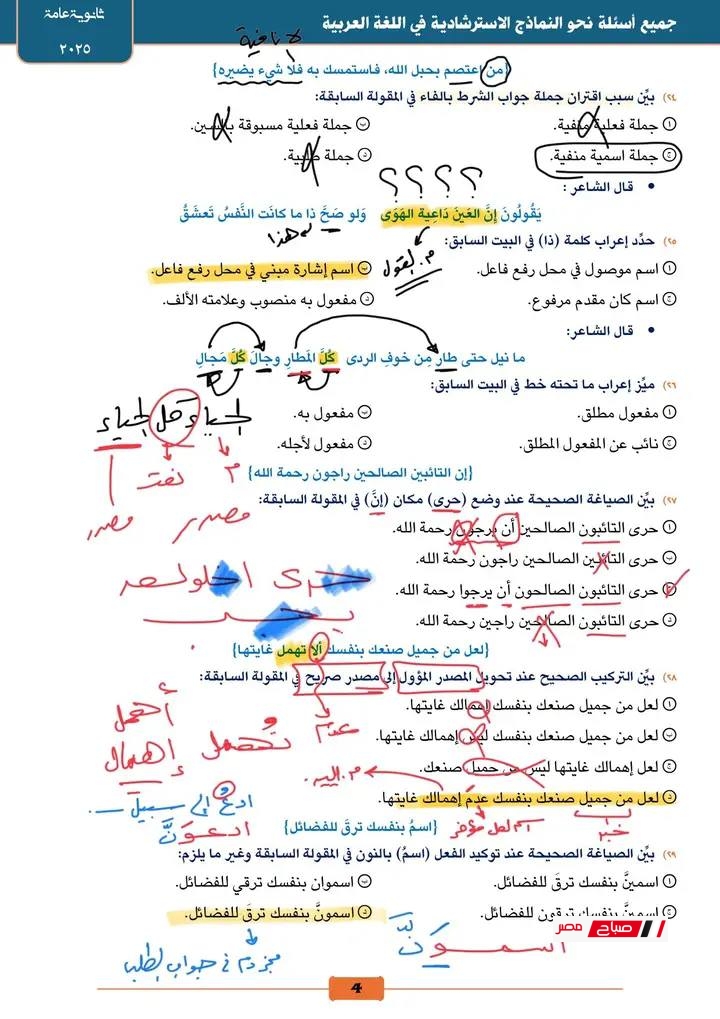 جميع أسئلة نحو النماذج الاسترشادية في اللغة العربية
ثانوية عامة
٢٠٢٥
لا نافية
{من اعتصم بحبل الله، فاستمسك به فلا شيء يضيره}
٢٤) بيِّن سبب اقتران جملة جواب الشرط بالفاء في المقولة السابقة:
أ جملة فعلية منفية.
ب جملة فعلية مسبوقة بالسين.
ج جملة اسمية منفية.
د جملة طلبية.
؟ ؟ ؟ ؟
• قال الشاعر :
يَقُولُونَ إِنَّ العَينَ دَاعِية الهَوَى وَلو صَحَّ ذا ما كانَت النَّفسُ تَعشَقُ
هذا
٢٥) حدِّد إعراب كلمة (ذا) في البيت السابق:
م. لقول
أ اسم موصول في محل رفع فاعل.
ب اسم إشارة مبني في محل رفع فاعل.
ج اسم كان مقدم مرفوع.
د مفعول به منصوب وعلامته الألف.
• قال الشاعر:
ما نيل حتى طار مِن خوفِ الردى كُلَّ المَطارِ وجالَ كُلَّ مَجالِ
٢٦) ميِّز إعراب ما تحته خط في البيت السابق:
أ مفعول مطلق.
ب مفعول به.
ج نائب عن المفعول المطلق.
د مفعول لأجله.
الحياء كل الحياء
م نعت
مصدر مصدر
{إن التائبين الصالحين راجون رحمة الله}
٢٧) بيِّن الصياغة الصحيحة عند وضع (حرى) مكان (إنَّ) في المقولة السابقة:
أ حرى التائبون الصالحين أن يرجون رحمة الله.
ب حرى التائبين الصالحين راجون رحمة الله.
ج حرى التائبون الصالحون أن يرجوا رحمة الله.
د حرى التائبون الصالحين راجين رحمة الله.
حرى اخلولق
يجب
{لعل من جميل صنعك بنفسك ألا تهمل غايتها}
٢٨) بيِّن التركيب الصحيح عند تحويل المصدر المؤول إلى مصدر صريح في المقولة السابقة:
أ لعل من جميل صنعك بنفسك إهمالك غايتها.
ب لعل من جميل صنعك بنفسك ليس إهمالك غايتها.
ج لعل إهمالك غايتها ليس من جميل صنعك.
د لعل من جميل صنعك بنفسك عدمَ إهمالك غايتها.
أهمل
عدم تُهمل إهمال
م. إليه
خبر
اسم لعل مؤخر
ادعُ إلى سبيل
ادعوَنَّ
{اسمُ بنفسك ترقَ للفضائل}
٢٩) بيِّن الصياغة الصحيحة عند توكيد الفعل (اسمُ) بالنون في المقولة السابقة وغير ما يلزم:
أ اسمينَّ بنفسك ترقَ للفضائل.
ب اسموان بنفسك ترقي للفضائل.
ج اسمنَّ بنفسك ترقون للفضائل.
د اسمونَّ بنفسك ترقَ للفضائل.
اسموَنَّ
مجزوم في جواب الطلب
صباح مصر
4